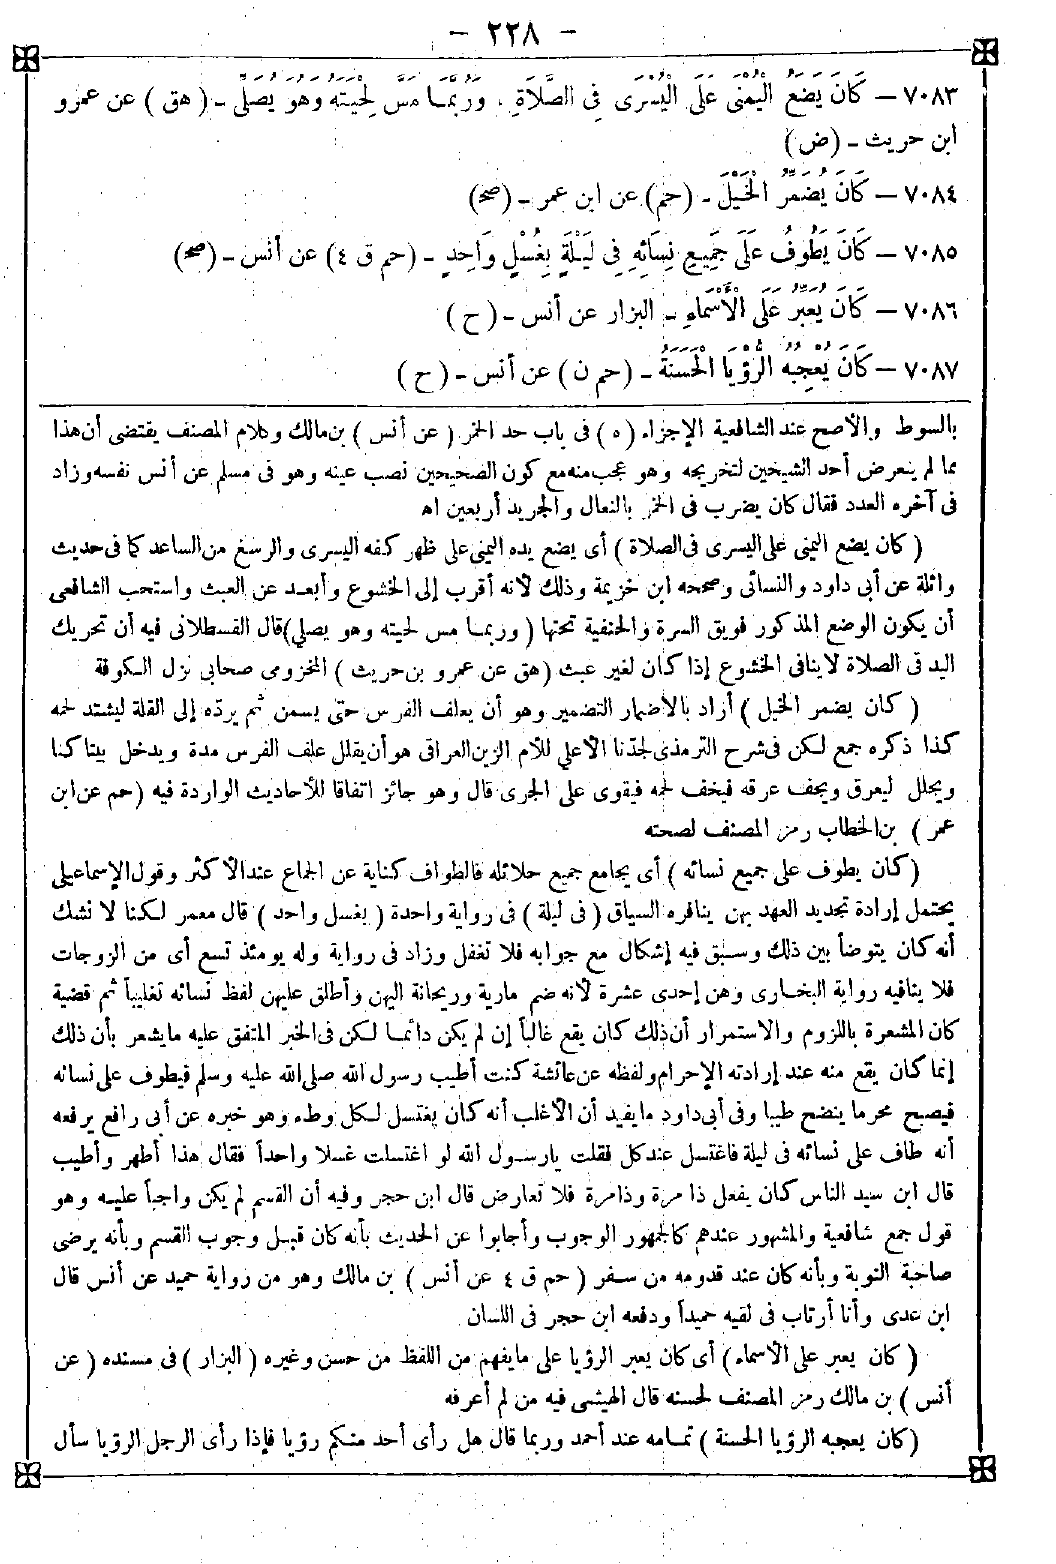 - ٢٢٨ -
٧٠٨٣ — كَانَ يَضَعُ الْيُمْنَى عَلَى الْيُسْرَى فِى الصَّلَاةِ ، وَرُبَّمَـا مَسَّ لِحْيَتَهُ وَهُوَ يُصَلِّى ـ ( هق ) عن عمرو
ابن حريث ـ (ض)
٧٠٨٤ — كَانَ يُضَمِّرُ الْخَيْلَ ـ (حم) عن ابن عمر ـ (صح)
٧٠٨٥ — كَانَ يَطُوفُ عَلَى جَمِيعِ نِسَائِهِ فِى لَيْلَةٍ بِغُسْلٍ وَاحِدٍ ـ (حم ق ٤) عن أنس ـ (صح)
٧٠٨٦ — كَانَ يُعَبِّرُ عَلَى الْأَسْمَاءِ ـ البزار عن أنس ـ ( ح )
٧٠٨٧ — كَانَ يُعْجِبُهُ الرُّؤْيَا الْحَسَنَةُ ـ (حم ن ) عن أنس ـ ( ح )
بالسوط والأصح عند الشافعية الإجزاء ( ه ) فى باب حد الخمر ( عن أنس ) بن مالك وكلام المصنف يقتضى أن هذا
مما لم يتعرض أحد الشيخين لتخريجه وهو عجب منه مع كون الصحيحين نصب عينه وهو فى مسلم عن أنس نفسه وزاد
فى آخره العدد فقال كان يضرب فى الخمر بالنعال والجريد أربعين اه
( كان يضع اليمنى على اليسرى فى الصلاة ) أى يضع يده اليمنى على ظهر كفه اليسرى والرسغ من الساعد كما فى حديث
واثلة عن أبى داود والنسائى وصححه ابن خزيمة وذلك لأنه أقرب إلى الخشوع وأبعـد عن العبث واستحب الشافعى
أن يكون الوضع المذكور فويق السرة والحنفية تحتها ( وربمـا مس لحيته وهو يصلى) قال القسطلانى فيه أن تحريك
اليد فى الصلاة لا ينافى الخشوع إذا كان لغير عبث (هق عن عمرو بن حريث ) المخزومى صحابى نزل الـكوفة
( كان يضمر الخيل ) أراد بالأضمار التضمير وهو أن يعلف الفرس حتى يسمن ثم يرده إلى القلة ليشتد لحمه
كذا ذكره جمع لـكن فى شرح الترمذى لجدنا الأعلى للأم الزين العراقى هو أن يقلل علف الفرس مدة ويدخل بيتا كنا
ويجلل ليعرق ويجف عرقه فيخف لحمه فيقوى على الجرى قال وهو جائز اتفاقا للأحاديث الواردة فيه (حم عن ابن
عمر ) بن الخطاب رمز المصنف لصحته
(كان يطوف على جميع نسائه ) أى يجامع جميع حلائله فالطواف كناية عن الجماع عند الأكثر وقول الإسماعيلى
يحتمل إرادة تجديد العهد بهن ينافره السياق ( فى ليلة ) فى رواية واحدة ( بغسل واحد ) قال معمر لـكنا لا نشك
أنه كان يتوضأ بين ذلك وسـبق فيه إشكال مع جوابه فلا تغفل وزاد فى رواية وله يومئذ تسع أى من الزوجات
فلا ينافيه رواية البخـارى وهن إحدى عشرة لأنه ضم مارية وريحانة اليهن وأطلق عليهن لفظ نسائه تغليباً ثم قضية
كان المشعرة باللزوم والاستمرار أن ذلك كان يقع غالباً إن لم يكن دائمـا لـكن فى الخبر المتفق عليه ما يشعر بأن ذلك
إنما كان يقع منه عند إرادته الإحرام ولفظه عن عائشة كنت أطيب رسول الله صلى الله عليه وسلم فيطوف على نسائه
فيصبح محرما ينضح طيبا وفى أبى داود ما يفيد أن الأغلب أنه كان يغتسل لـكل وطء وهو خبره عن أبى رافع يرفعه
أنه طاف على نسائه فى ليلة فاغتسل عند كل فقلت يارسـول الله لو اغتسلت غسلا واحداً فقال هذا أطهر وأطيب
قال ابن سيد الناس كان يفعل ذا مرة وذا مرة فلا تعارض قال ابن حجر وفيه أن القسم لم يكن واجباً عليـه وهو
قول جمع شافعية والمشهور عندهم كالجمهور الوجوب وأجابوا عن الحديث بأنه كان قبـل وجوب القسم وبأنه يرضى
صاحبة النوبة وبأنه كان عند قدومه من سـفر ( حم ق ٤ عن أنس ) بن مالك وهو من رواية حميد عن أنس قال
ابن عدى وأنا أرتاب فى لقيه حميداً ودفعه ابن حجر فى اللسان
( كان يعبر على الأسماء ) أى كان يعبر الرؤيا على ما يفهم من اللفظ من حسن وغيره ( البزار ) فى مسنده ( عن
أنس ) بن مالك رمز المصنف لحسنه قال الهيثمى فيه من لم أعرفه
(كان يعجبه الرؤيا الحسنة ) تمـامه عند أحمد وربما قال هل رأى أحد منـكم رؤيا فإذا رأى الرجل الرؤيا سأل